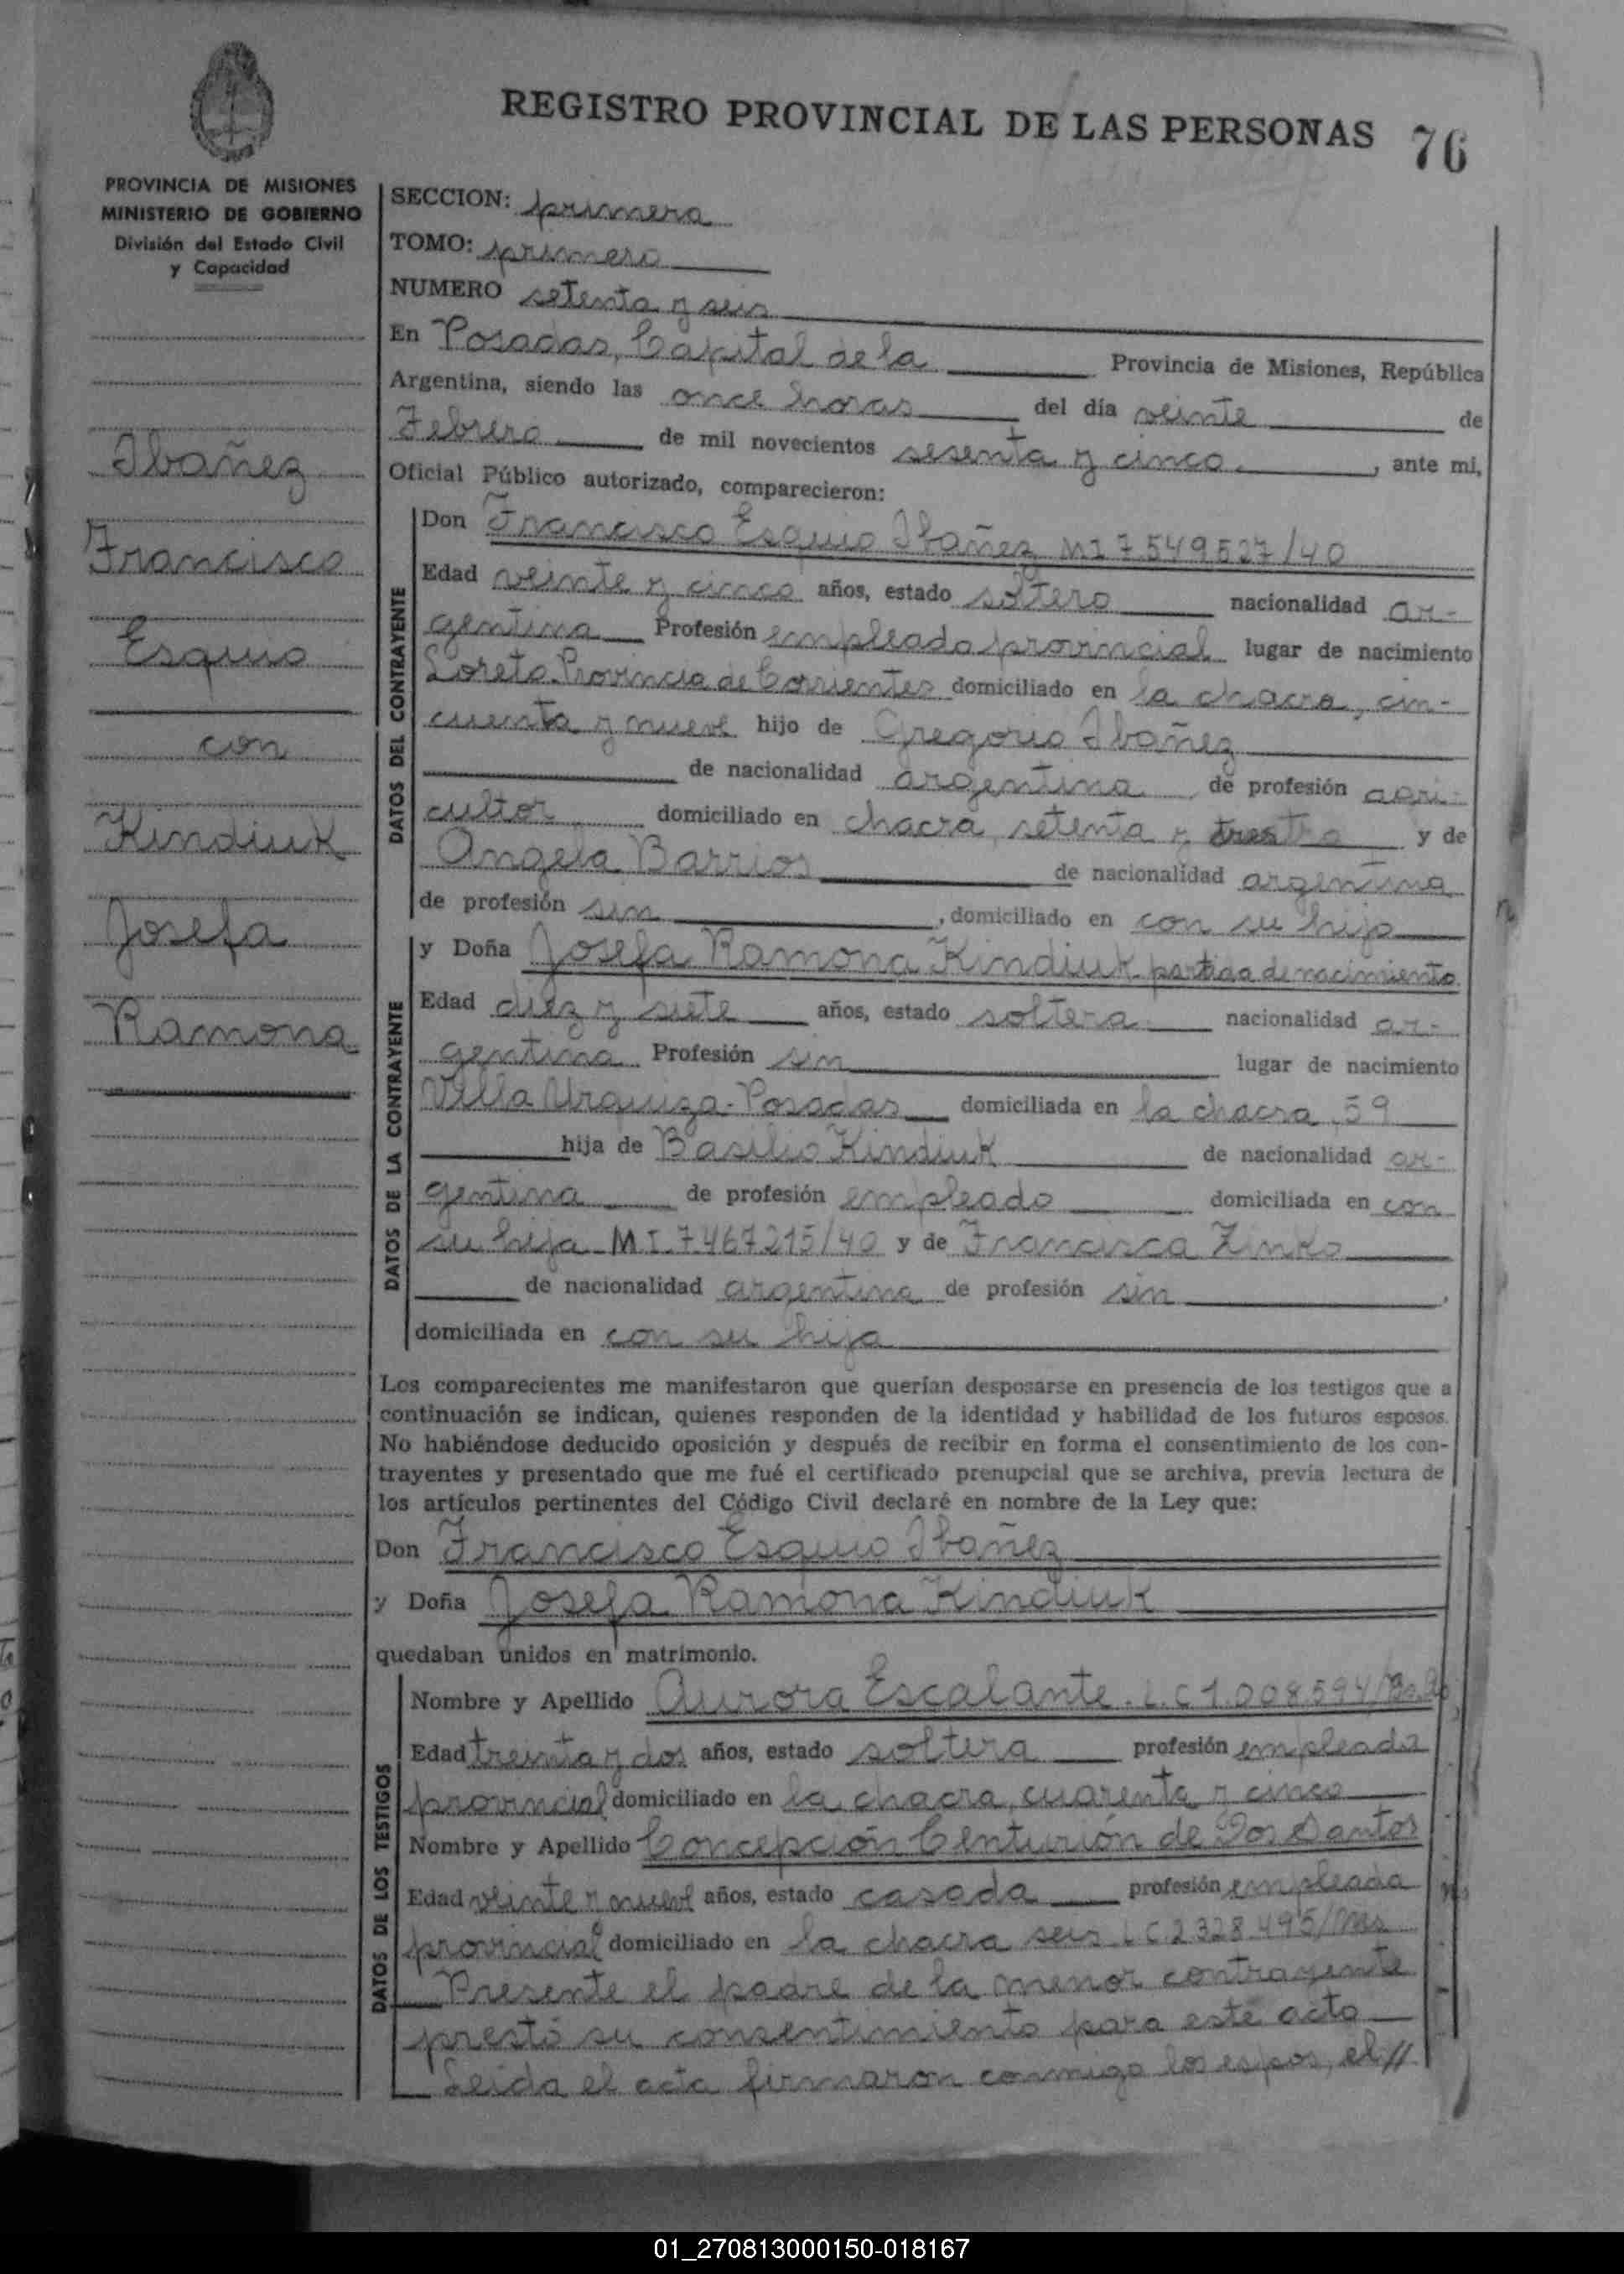 REGISTRO PROVINCIAL DE LAS PERSONAS 76
PROVINCIA DE MISIONES
MINISTERIO DE GOBIERNO
División del Estado Civil
y Capacidad
Ibañez
Francisco
Esquio
con
Kindiuk
Josefa
Ramona
SECCION: primera
TOMO: primero
NUMERO setenta y seis
En Posadas, Capital de la Provincia de Misiones, República
Argentina, siendo las once horas del día veinte de
Febrero de mil novecientos sesenta y cinco, ante mi,
Oficial Público autorizado, comparecieron:
DATOS DEL CONTRAYENTE
Don Francisco Esquio Ibañez MI 7.549527/40
Edad veinte y cinco años, estado soltero nacionalidad ar-
gentina Profesión empleado provincial lugar de nacimiento
Loreto. Provincia de Corrientes domiciliado en la chacra, cin-
cuenta y nueve hijo de Gregorio Ibañez
de nacionalidad argentina de profesión agri-
cultor domiciliado en chacra, setenta y y de
Angela Barrios de nacionalidad argentina
de profesión sin, domiciliado en con su hijo
DATOS DE LA CONTRAYENTE
y Doña Josefa Ramona Kindiuk partida de nacimiento
Edad diez y siete años, estado soltera nacionalidad ar-
gentina Profesión sin lugar de nacimiento
Villa Urquiza-Posadas domiciliada en la chacra 59
hija de Basilio Kindiuk de nacionalidad ar-
gentina de profesión empleado domiciliada en con
su hija M I. 7.467215/40 y de Francisca Zinko
de nacionalidad argentina de profesión sin,
domiciliada en con su hija
Los comparecientes me manifestaron que querían desposarse en presencia de los testigos que a
continuación se indican, quienes responden de la identidad y habilidad de los futuros esposos.
No habiéndose deducido oposición y después de recibir en forma el consentimiento de los con-
trayentes y presentado que me fué el certificado prenupcial que se archiva, previa lectura de
los artículos pertinentes del Código Civil declaré en nombre de la Ley que:
Don Francisco Esquio Ibañez
y Doña Josefa Ramona Kindiuk
quedaban unidos en matrimonio.
DATOS DE LOS TESTIGOS
Nombre y Apellido Aurora Escalante. L.C 1.008.594/
Edad treinta y dos años, estado soltera profesión empleada
provincial domiciliado en la chacra, cuarenta y cinco
Nombre y Apellido Concepción Centurión de Dos Santos
Edad veinte y nueve años, estado casada profesión empleada
provincial domiciliado en la chacra seis L C 2.328.495/Mns
Presente el padre de la menor contrayente
prestó su consentimiento para este acto
Leida el acta firmaron conmigo los espos, el//
01_270813000150-018167